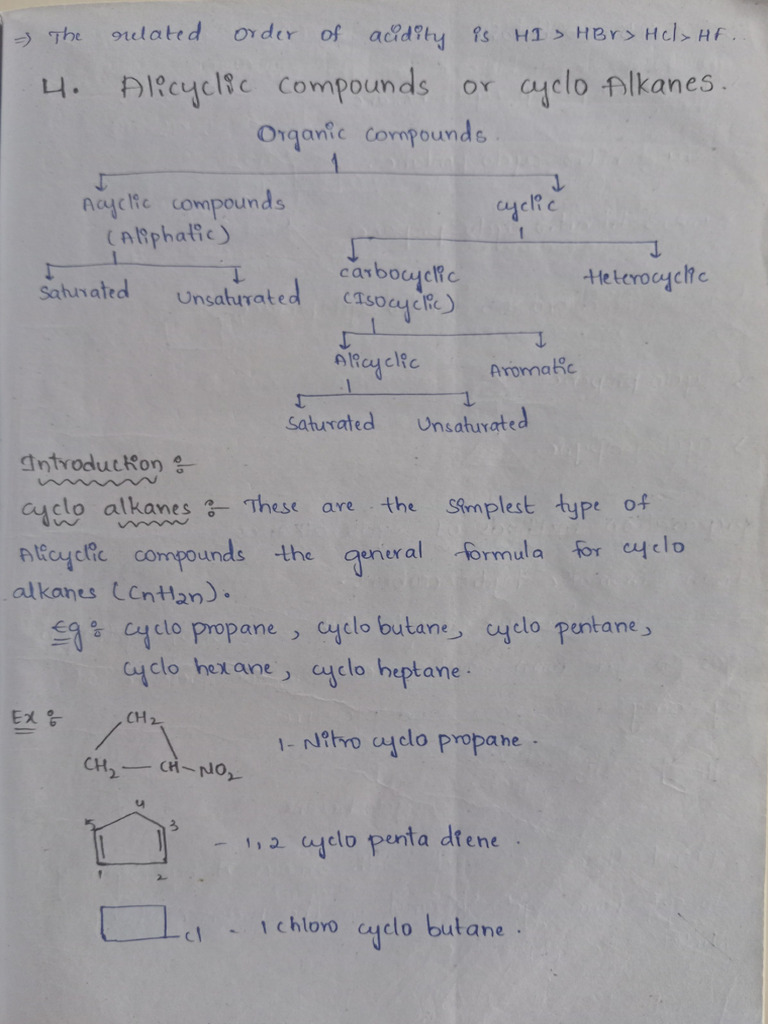 ⇒ The related order of acidity is HI > HBr > HCl > HF.
4. Alicyclic compounds or cyclo Alkanes.
Organic compounds.
Acyclic compounds cyclic
(Aliphatic)
carbocyclic Heterocyclic
Saturated Unsaturated (Isocyclic)
Alicyclic Aromatic
Saturated Unsaturated
Introduction :-
cyclo alkanes :- These are the simplest type of
Alicyclic compounds the general formula for cyclo
alkanes (CnH2n).
Eg : cyclo propane, cyclo butane, cyclo pentane,
cyclo hexane, cyclo heptane.
Ex :- CH2
1- Nitro cyclo propane.
CH2 — CH - NO2
4
5 3
- 1,2 cyclo penta diene.
1 2
Cl - 1 chloro cyclo butane.